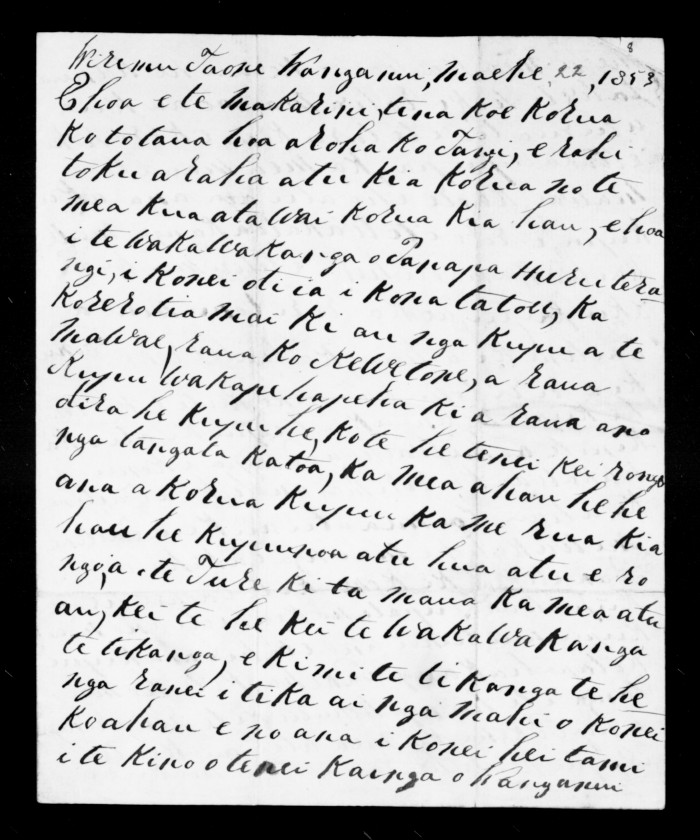 8
Wiremu Taone Wanganui, Maehe, 22, 1853
Ehoa e te Makarini, tena koe korua
ko to taua hoa aroha ko Tanji, e rahi
toku aroha atu kia korua no te
mea kua atawai korua kia hau, e hoa
i te wakawakanga o Tanapa Huru te ra
ngi, i konei otiia i kona tatou, ka
korerotia mai ki au nga kupu a te
Mawae, raua ko Kewetone, a raua
kupu wakapehapeha ki a raua ano
otira he kupu he, ko te he tenei kei rongo
nga tangata katoa, ka mea ahau he he
ana a korua kupu ka me rua kia
hau he kupu noa atu hua atu e ro
ngo,a te Ture ki ta maua ka mea atu
au, kei te he kei te wakawakanga
te tikanga, e kimi te tikanga te he
nga ranei i tika ai nga mahi o konei
ko ahau e noana i konei hei tami
i te kino o tenei Kainga o Wanganui